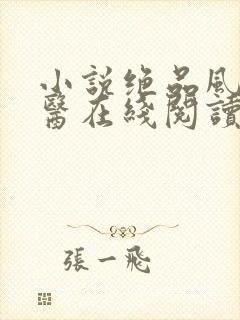 小説绝品風
醫在綫閱讀
張一飛